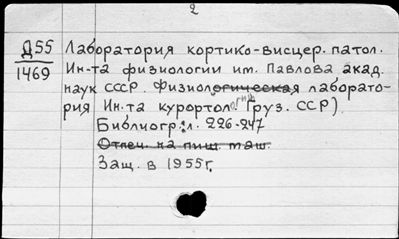 2
Д55 Лаборатория кортико-висцер. патол.
1469 Ин-та физиологии им. Павлова акад.
наук СССР. Физиологическая лаборато-
рия Ин-та курортологии Груз. ССР)
Библиогр.: л. 226-247
Отпеч. на пиш. маш.
Защ. в 1955г.